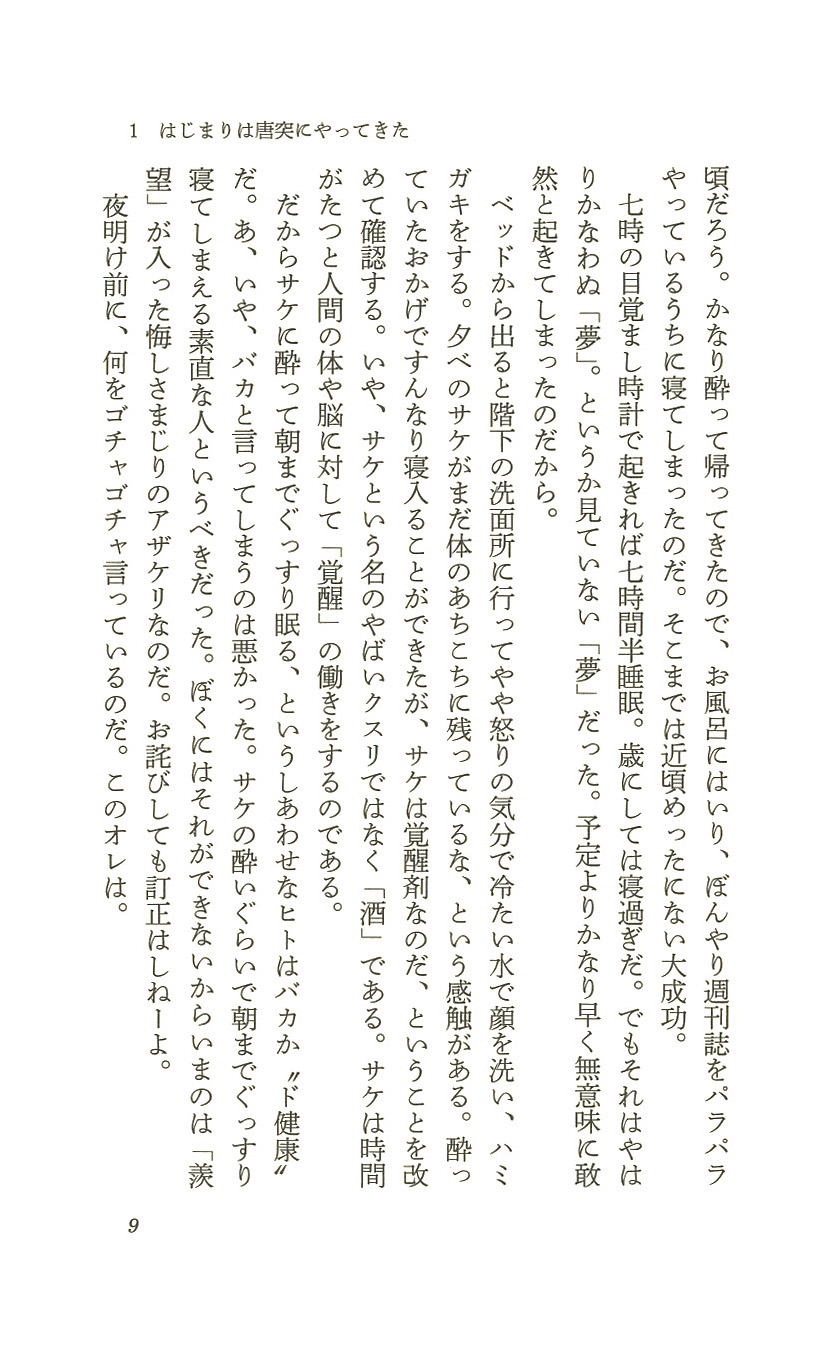 1　はじまりは唐突にやってきた
頃だろう。かなり酔って帰ってきたので、お風呂にはいり、ぼんやり週刊誌をパラパラ
やっているうちに寝てしまったのだ。そこまでは近頃めったにない大成功。
　七時の目覚まし時計で起きれば七時間半睡眠。歳にしては寝過ぎだ。でもそれはやは
りかなわぬ「夢」。というか見ていない「夢」だった。予定よりかなり早く無意味に敢
然と起きてしまったのだから。
　ベッドから出ると階下の洗面所に行ってやや怒りの気分で冷たい水で顔を洗い、ハミ
ガキをする。夕べのサケがまだ体のあちこちに残っているな、という感触がある。酔っ
ていたおかげですんなり寝入ることができたが、サケは覚醒剤なのだ、ということを改
めて確認する。いや、サケという名のやばいクスリではなく「酒」である。サケは時間
がたつと人間の体や脳に対して「覚醒」の働きをするのである。
　だからサケに酔って朝までぐっすり眠る、というしあわせなヒトはバカか〝ド健康〟
だ。あ、いや、バカと言ってしまうのは悪かった。サケの酔いぐらいで朝までぐっすり
寝てしまえる素直な人というべきだった。ぼくにはそれができないからいまのは「羨
望」が入った悔しさまじりのアザケリなのだ。お詫びしても訂正はしねーよ。
　夜明け前に、何をゴチャゴチャ言っているのだ。このオレは。
9